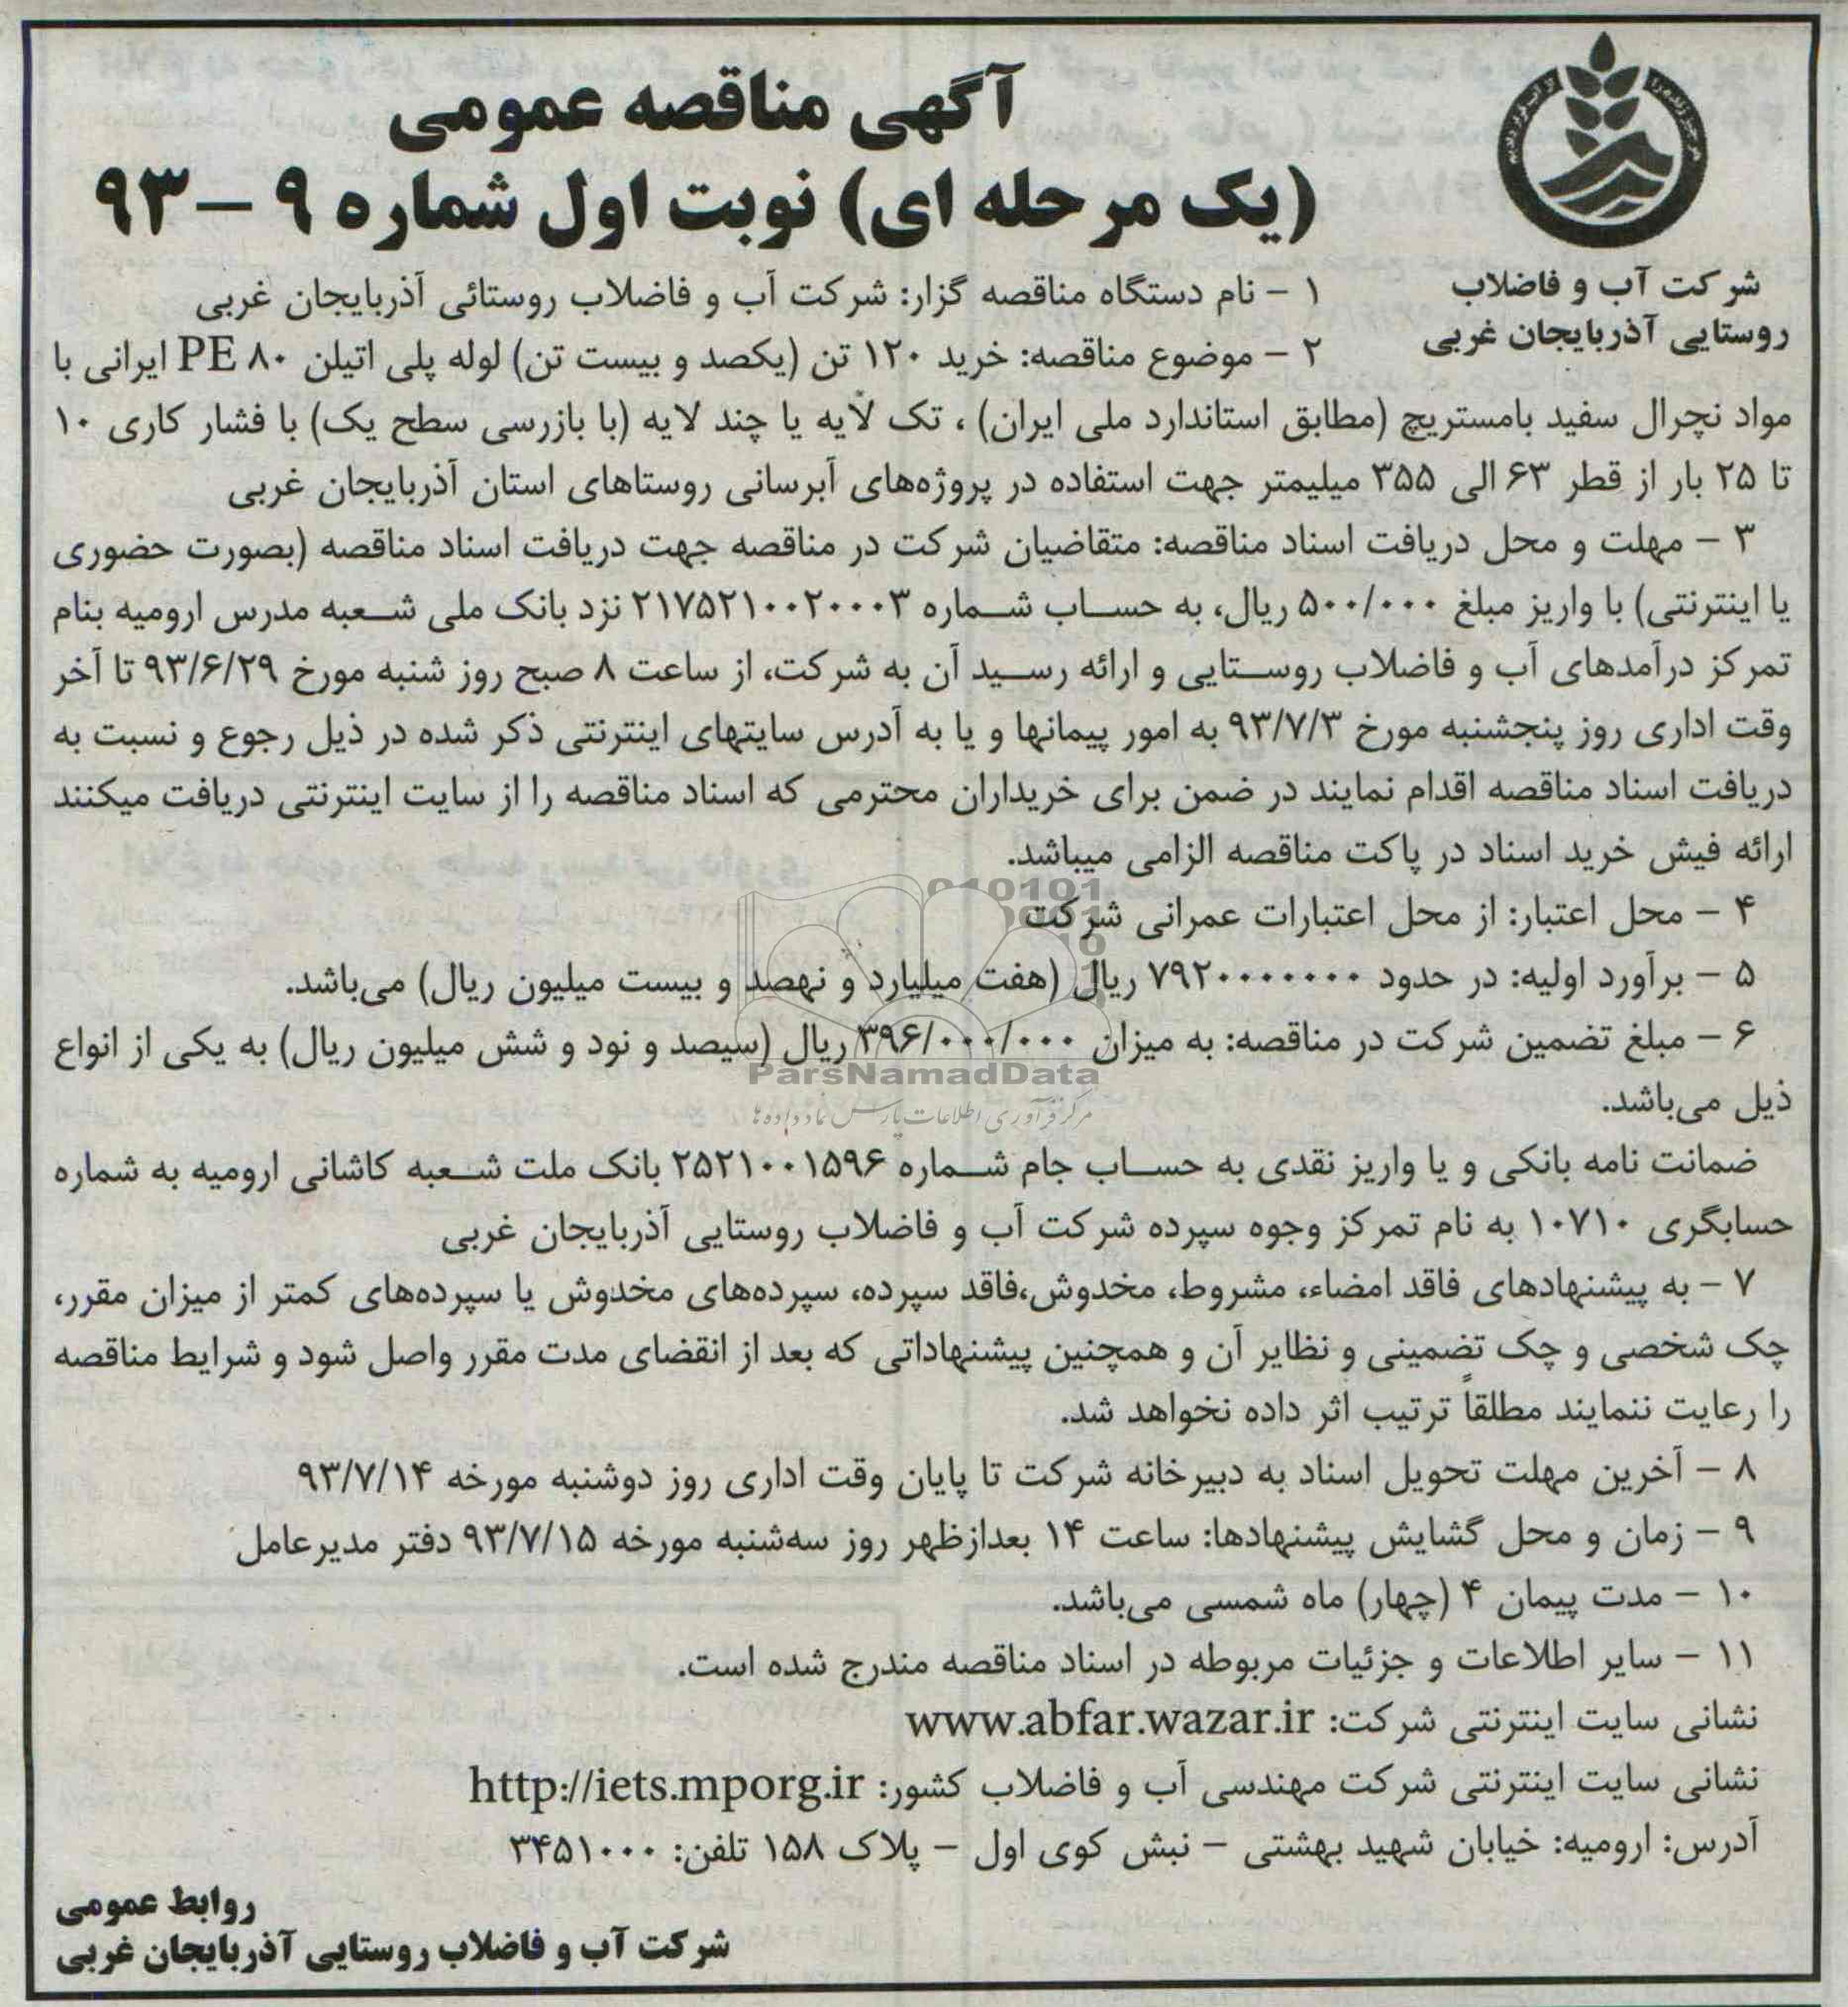 آگهی مناقصه عمومی
(یک مرحله ای) نوبت اول شماره ۹ – ۹۳
شرکت آب و فاضلاب
روستایی آذربایجان غربی
۱ – نام دستگاه مناقصه گزار: شرکت آب و فاضلاب روستائی آذربایجان غربی
۲ – موضوع مناقصه: خرید ۱۲۰ تن (یکصد و بیست تن) لوله پلی اتیلن PE ۸۰ ایرانی با
مواد نچرال سفید بامستریچ (مطابق استاندارد ملی ایران) ، تک لایه یا چند لایه (با بازرسی سطح یک) با فشار کاری ۱۰
تا ۲۵ بار از قطر ۶۳ الی ۳۵۵ میلیمتر جهت استفاده در پروژه‌های آبرسانی روستاهای استان آذربایجان غربی
۳ – مهلت و محل دریافت اسناد مناقصه: متقاضیان شرکت در مناقصه جهت دریافت اسناد مناقصه (بصورت حضوری
یا اینترنتی) با واریز مبلغ ۵۰۰/۰۰۰ ریال، به حساب شماره ۲۱۷۵۲۱۰۰۲۰۰۰۳ نزد بانک ملی شعبه مدرس ارومیه بنام
تمرکز درآمدهای آب و فاضلاب روستایی و ارائه رسید آن به شرکت، از ساعت ۸ صبح روز شنبه مورخ ۹۳/۶/۲۹ تا آخر
وقت اداری روز پنجشنبه مورخ ۹۳/۷/۳ به امور پیمانها و یا به آدرس سایتهای اینترنتی ذکر شده در ذیل رجوع و نسبت به
دریافت اسناد مناقصه اقدام نمایند در ضمن برای خریداران محترمی که اسناد مناقصه را از سایت اینترنتی دریافت میکنند
ارائه فیش خرید اسناد در پاکت مناقصه الزامی میباشد.
۴ – محل اعتبار: از محل اعتبارات عمرانی شرکت
۵ – برآورد اولیه: در حدود ۷۹۲۰۰۰۰۰۰۰ ریال (هفت میلیارد و نهصد و بیست میلیون ریال) می‌باشد.
۶ – مبلغ تضمین شرکت در مناقصه: به میزان ۳۹۶/۰۰۰/۰۰۰ ریال (سیصد و نود و شش میلیون ریال) به یکی از انواع
ParsNamadData
ذیل می‌باشد.
مرکز فرآوری اطلاعات پارس نماد داده ها
ضمانت نامه بانکی و یا واریز نقدی به حساب جام شماره ۲۵۲۱۰۰۱۵۹۶ بانک ملت شعبه کاشانی ارومیه به شماره
حسابگری ۱۰۷۱۰ به نام تمرکز وجوه سپرده شرکت آب و فاضلاب روستایی آذربایجان غربی
۷ – به پیشنهادهای فاقد امضاء، مشروط، مخدوش،فاقد سپرده، سپرده‌های مخدوش یا سپرده‌های کمتر از میزان مقرر،
چک شخصی و چک تضمینی و نظایر آن و همچنین پیشنهاداتی که بعد از انقضای مدت مقرر واصل شود و شرایط مناقصه
را رعایت ننمایند مطلقاً ترتیب اثر داده نخواهد شد.
۸ – آخرین مهلت تحویل اسناد به دبیرخانه شرکت تا پایان وقت اداری روز دوشنبه مورخه ۹۳/۷/۱۴
۹ – زمان و محل گشایش پیشنهادها: ساعت ۱۴ بعدازظهر روز سه‌شنبه مورخه ۹۳/۷/۱۵ دفتر مدیرعامل
۱۰ – مدت پیمان ۴ (چهار) ماه شمسی می‌باشد.
۱۱ – سایر اطلاعات و جزئیات مربوطه در اسناد مناقصه مندرج شده است.
نشانی سایت اینترنتی شرکت: www.abfar.wazar.ir
نشانی سایت اینترنتی شرکت مهندسی آب و فاضلاب کشور: http://iets.mporg.ir
آدرس: ارومیه: خیابان شهید بهشتی – نبش کوی اول – پلاک ۱۵۸ تلفن: ۳۴۵۱۰۰۰
روابط عمومی
شرکت آب و فاضلاب روستایی آذربایجان غربی